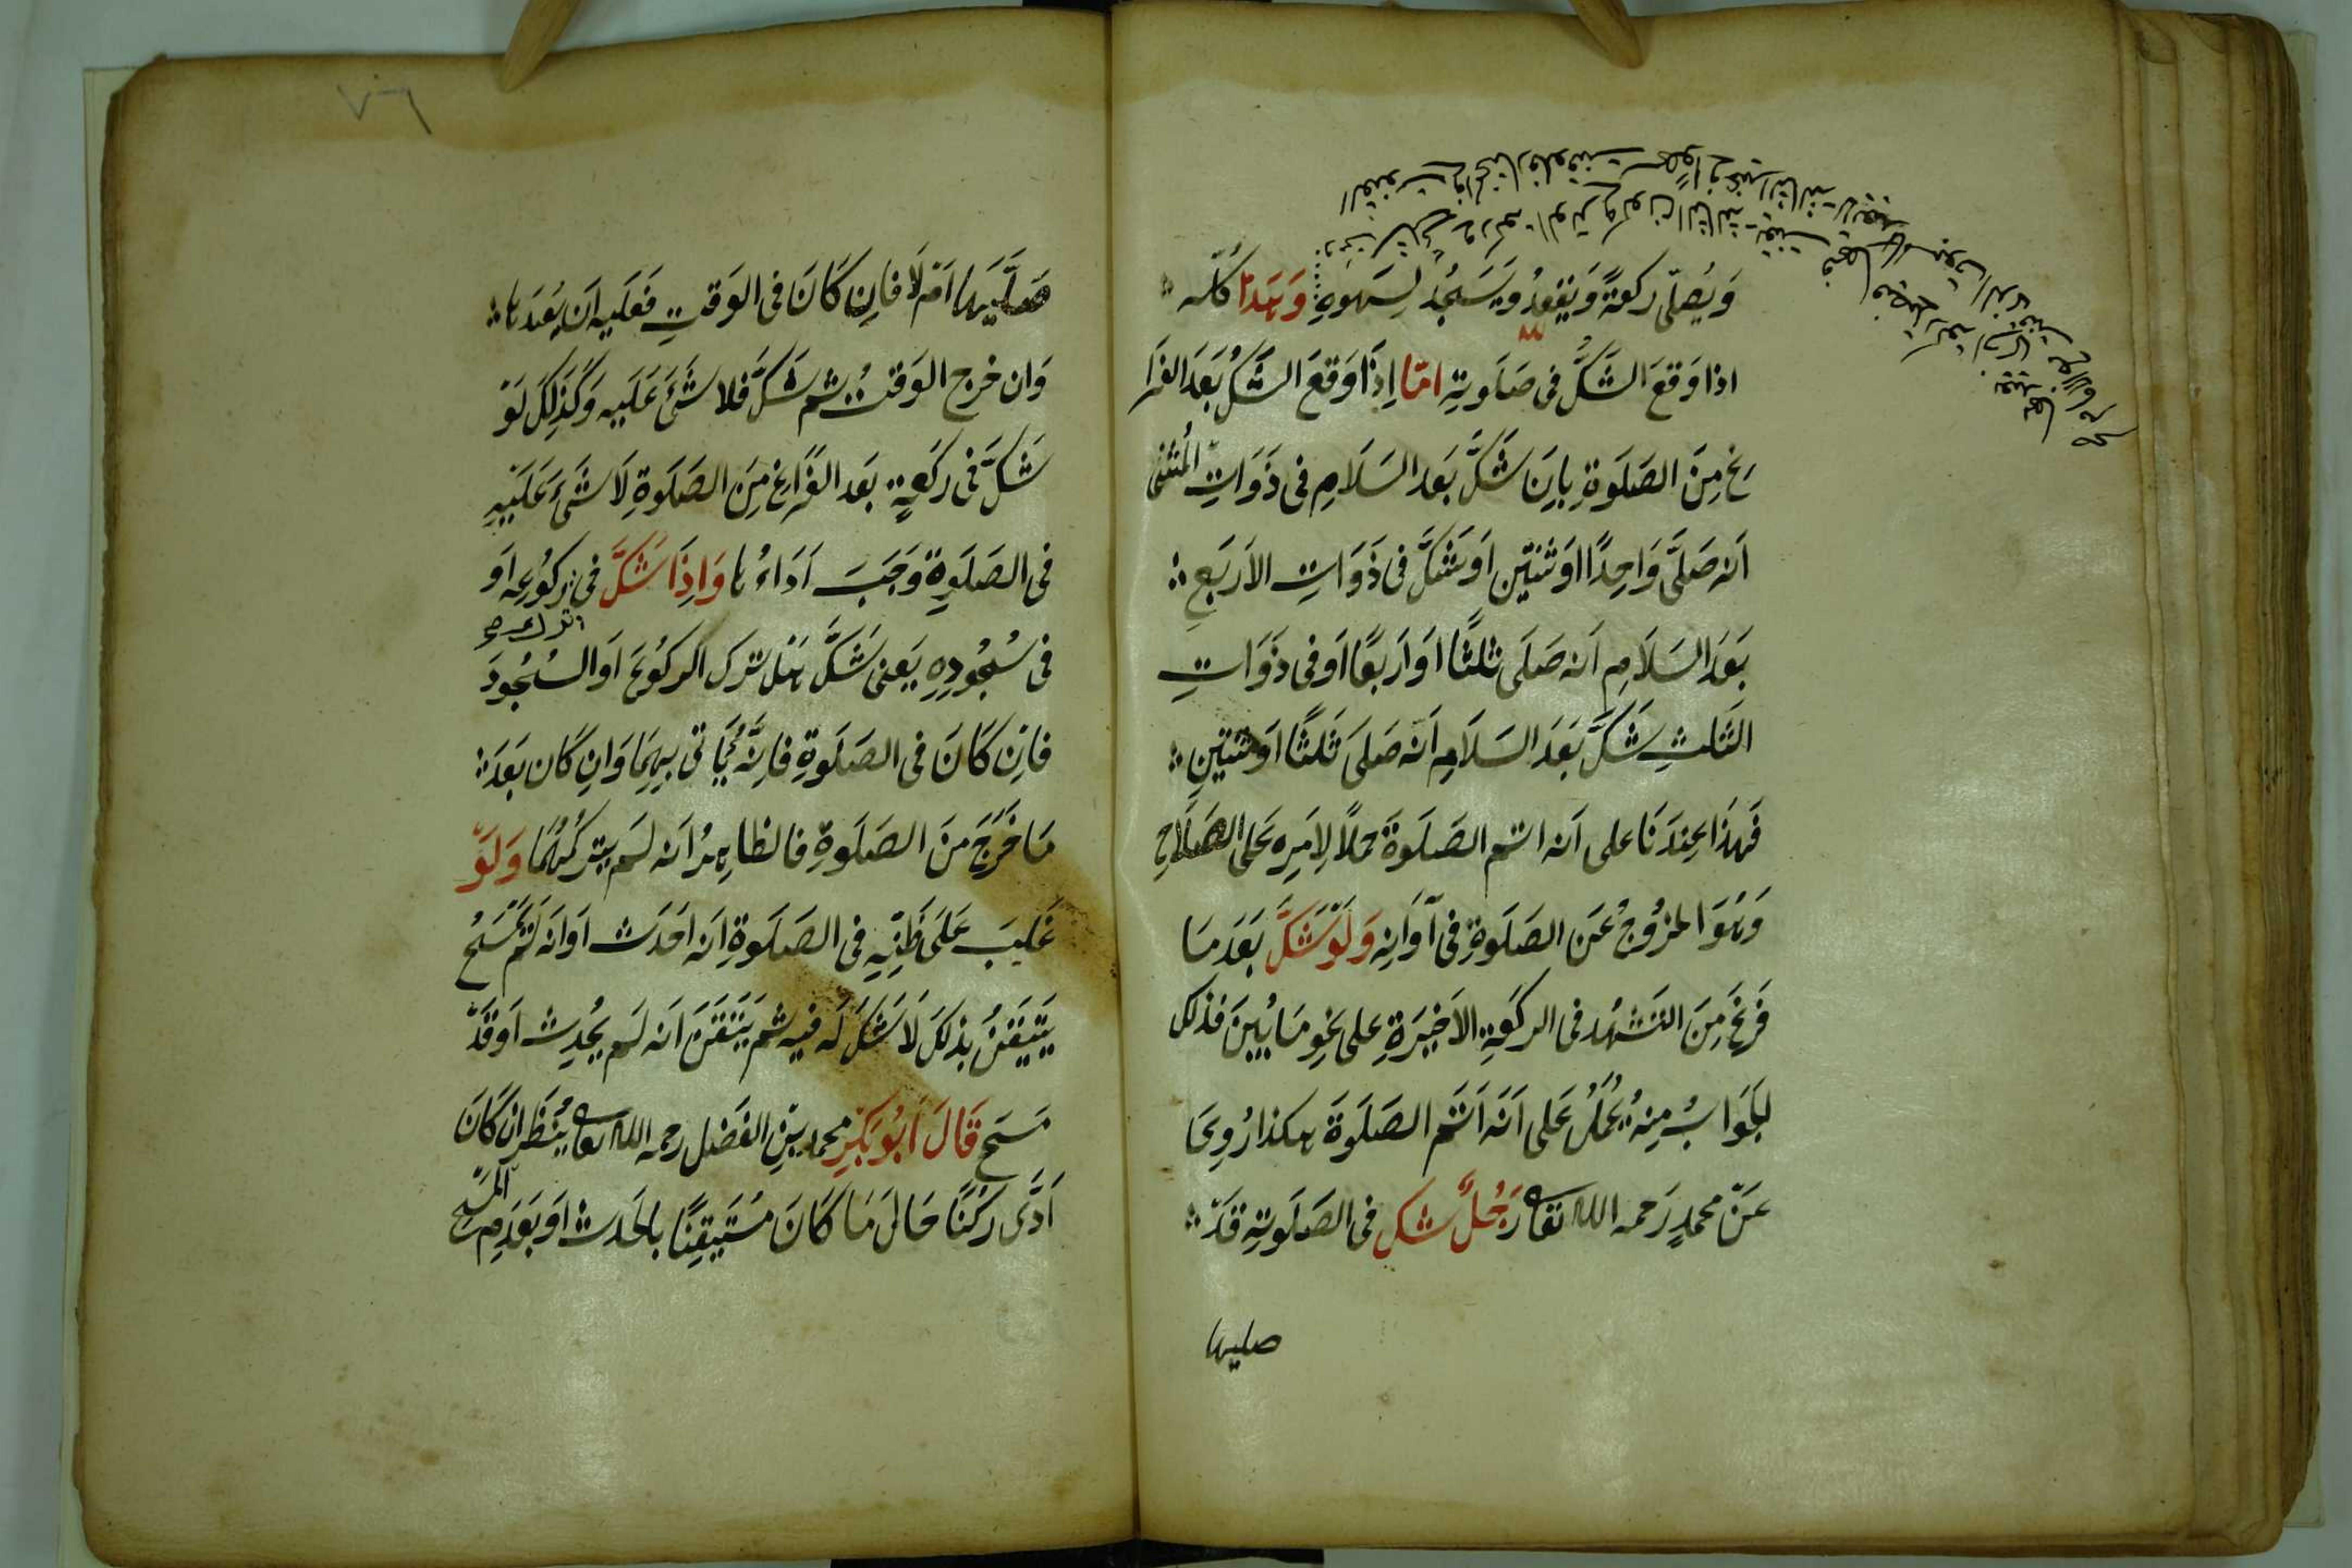 وَيُصَلّى ركعةً وَيَقعدُ وَيَسجُد لِسَهوِهِ وَهَذا كُلّه
اذا وَقعَ الشَّكُّ فى صَلَوتِهِ امّا اِذَا وَقعَ الشّكُ بَعدَ الفَرَا
رغ مِنَ الصَلَوةِ بِاِن شَكَّ بَعد السَلَامِ فى ذَوَاتِ المُثنٰى
اَنه صَلَّى وَاحِدًا اوَثنتَين اَو شَكَّ فى ذَوَاتِ الاَربَعِ
بَعَد السَلَامِ اَنه صَلَى ثلثًا اَو اَربعًا اَو فى ذَوَاتِ
الثَلثِ شَكَّ بَعدَ السَلَامِ اَنه صَلىَ ثَلثًا اَو ثنتَينِ
فَهذَا عِندَنَا على اَنه اتم الصَلَوةَ حملًا لِامَرِه عَلى الصَلَاحِ
وَهُوَ الخرُوجُ عَن الصَلَوةِ فى آوَانِه وَلَو شَكَّ بَعدَ مَا
فَرغَ مِنَ التَشَهُد فى الركعَةِ الاَخِيرَةِ على نحوِ مَا بُيِنَ فذلك
الجَوَابُ مِنهُ يُحمَلُ عَلى اَنَّه اَتَم الصَلَوةَ هكذا رُوِىَ
عَن محمدٍ رَحمه الله تعالى رَجُلٌ شك فى الصَلَوتِهِ قَدّ
صليها
صَلَّيَها اَم لَا فاِن كَانَ فى الوَقتِ فَعَليهِ اَن يُعِيدَها
وَان خرج الوَقتُ ثم شَكَّ فلا شَئَ عَلَيه وَكَذلِكَ لَو
شَكَّ فى رَكعةٍ بَعد الفَراغ مِنَ الصَلَوةِ لَا شَئَ عَلَيهِ
فى الصَلَوةِ وَجَبَ اَدَاءُها وَاِذَا شَكَّ فى ركُوُعِه اَو
فى سُجُودِهِ يَعنى شَكَّ هَل ترك الركُوعَ اَو السُجُودَ
فاِن كَانَ فى الصَلَوةِ فاِنَّه يَاتى بِهِمَا وَاِن كَان بَعَد
مَا خَرَجَ مِنَ الصَلَوةِ فالظاهِرُ اَنه لَم يترُكهُمَا وَلَوَ
غَلبَ عَلَى ظَنِّهِ فى الصَلَوةِ اَنه اَحدَث اَو اَنه لَم يَمسَحُ
يَتَيَقَّنُ بذلكَ لَا شَكَّ لَه فيه ثم يَتَيَقَن اَنه لَم يُحدِث اَو قَدّ
مَسَح قَالَ اَبُو بَكرٍ محمد بنِ الفَضل رحمه الله تعالى يُنظَر ان كَانَ
اَدَّى رُكنًا حَالَ مَا كَانَ مُستَيقِنًا بالحَدث اَو بَعَدمِ المَسَحِ